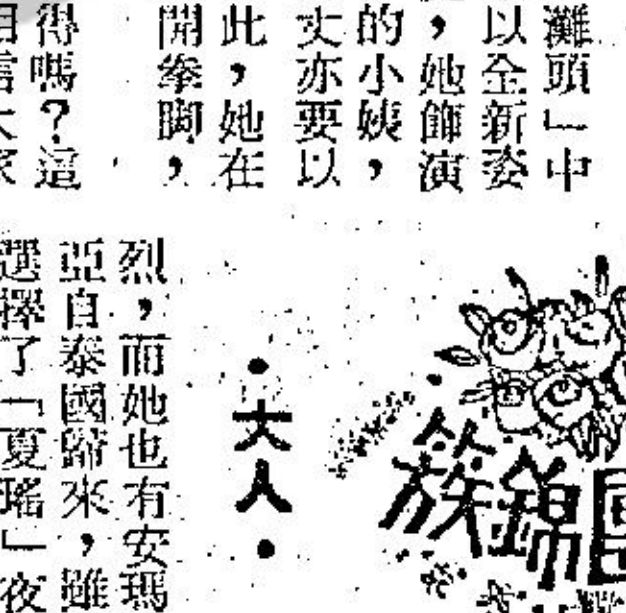 灘頭」中
以全新姿
，她飾演
的小姨，
丈亦要以
此，她在
開拳脚，
得嗎？這
信大家
團錦簇
•大人•
烈，而她也有安瑪
亞自泰國歸來，雖
選擇了「夏瑤」夜